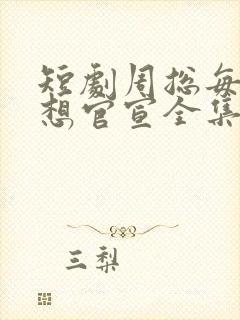 短劇周總每
想官宣全集
三梨